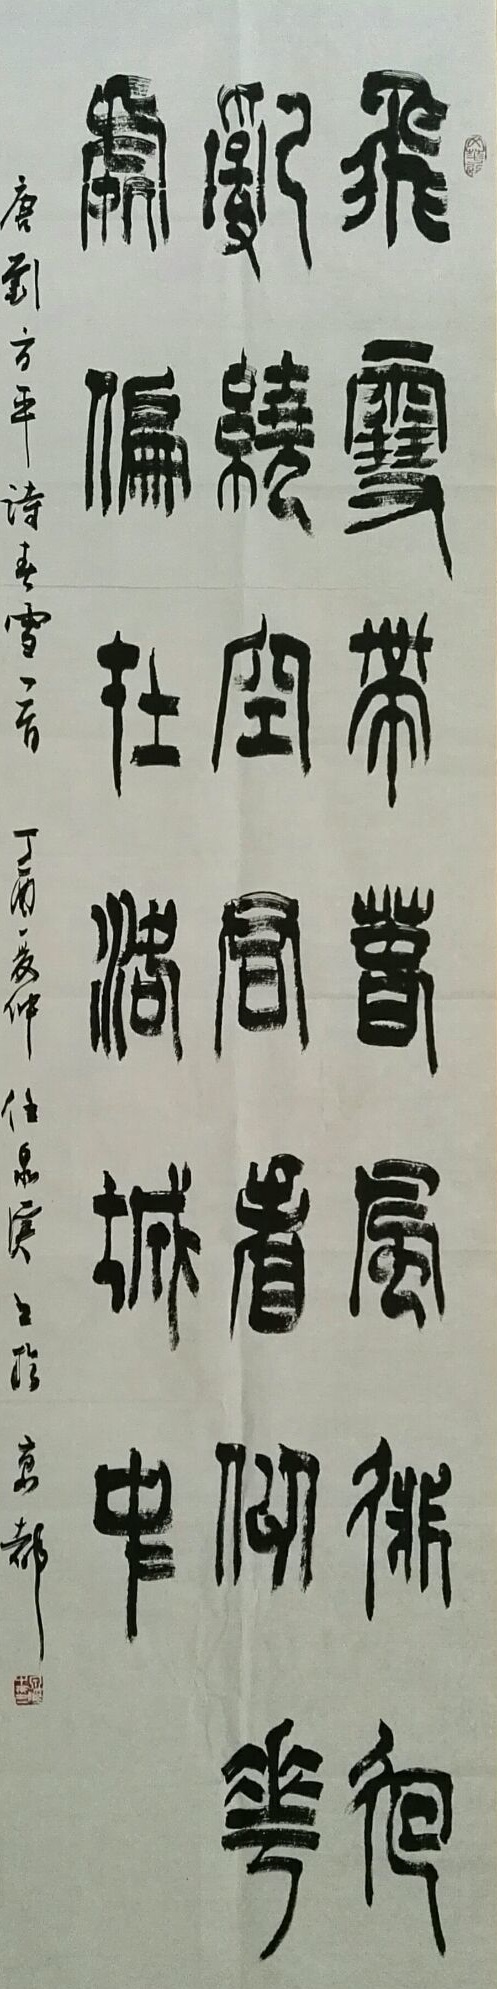 飛雪帶春風徘徊
亂繞空君看似華
處偏在洛城中
唐劉方平詩春雪一首 丁酉夏仲 任泉溪书於京都